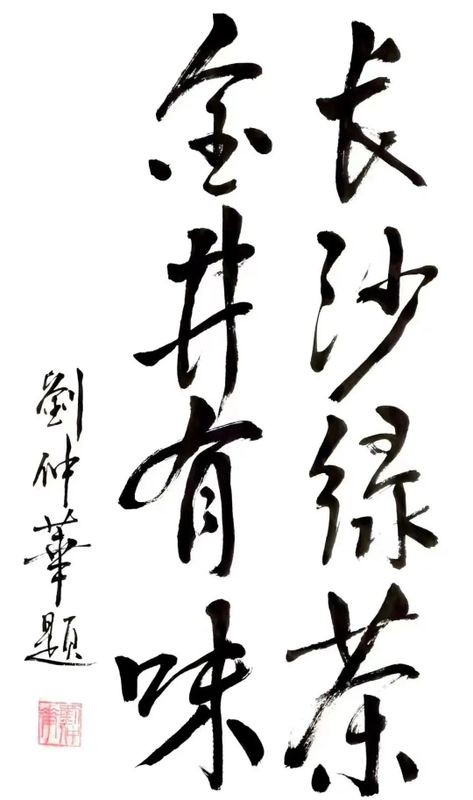 长沙绿茶
金井有味
劉仲華题